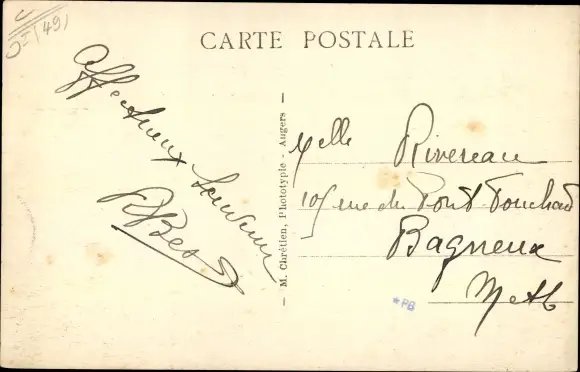 (49)
CARTE POSTALE
Affectueux
Souvenir
RBes
M. Chrétien, Phototypie - Angers
Melle Rivereau
105 rue du Pont-Fouchard
Bagneux
M et L
*PB